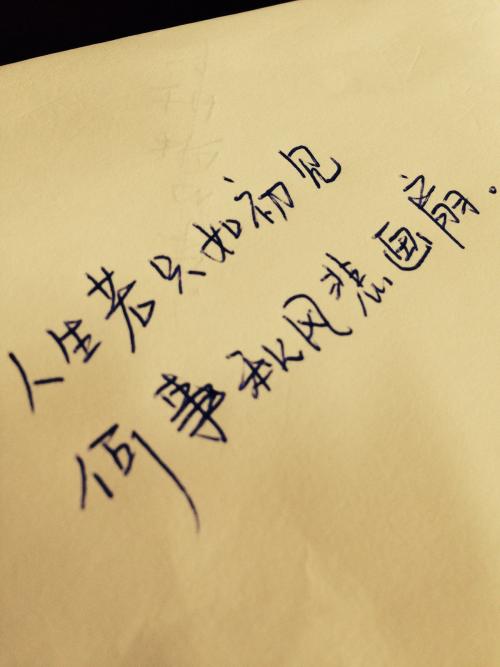 人生若只如初见
何事秋风悲画扇。